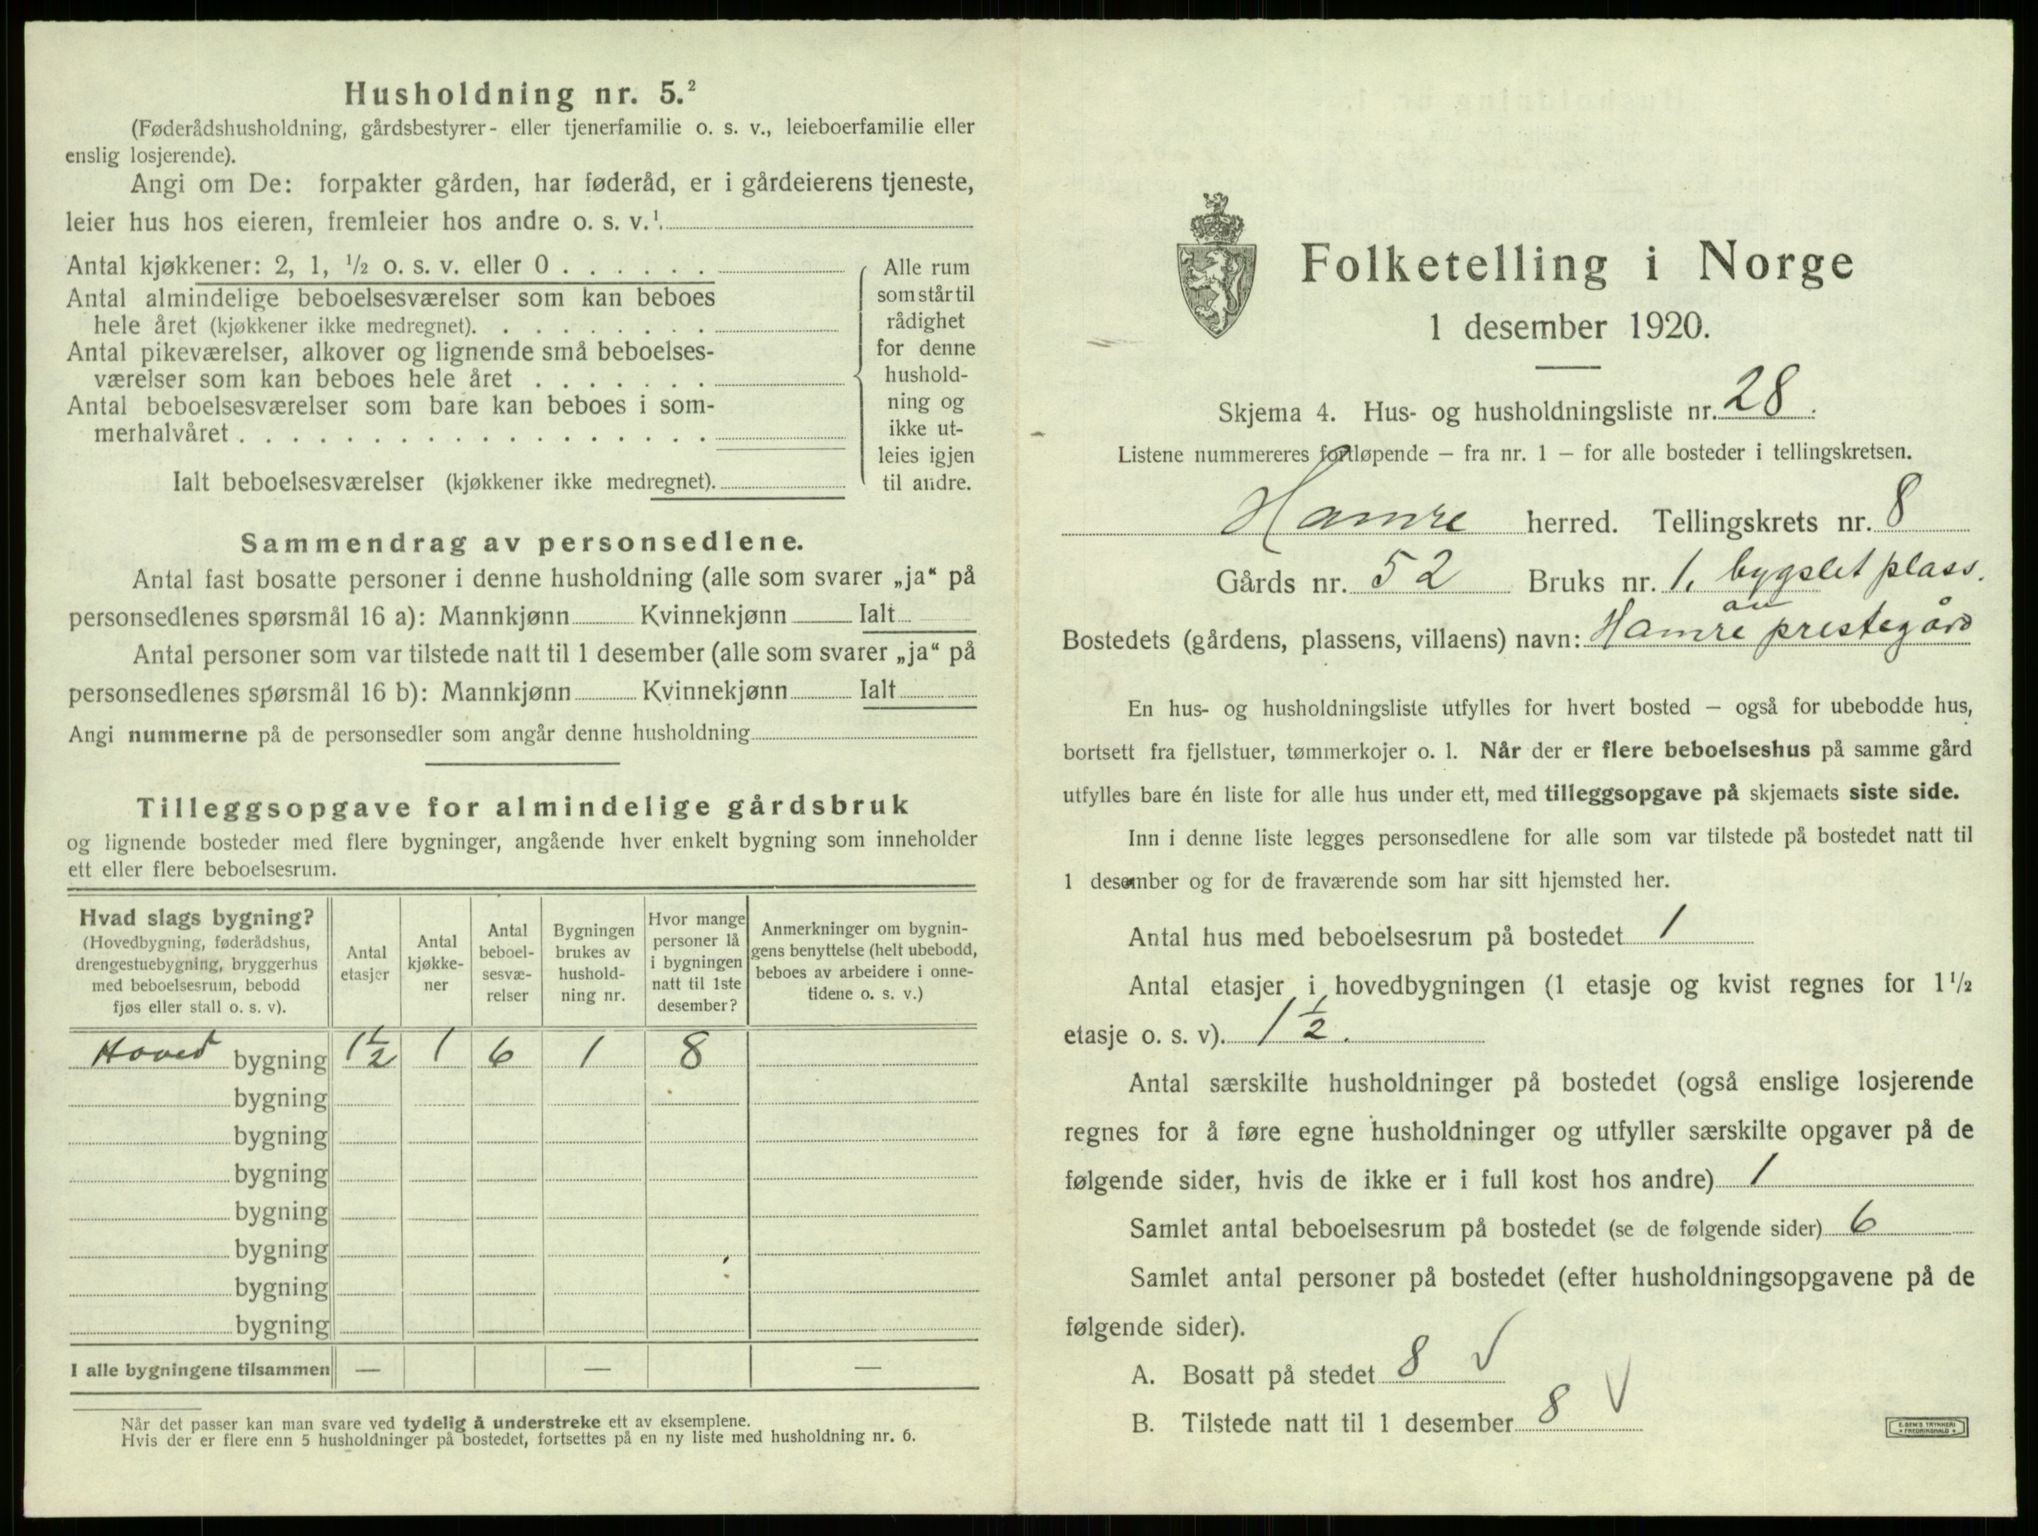 Husholdning nr. 5.²
(Føderådshusholdning, gårdsbestyrer- eller tjenerfamilie o. s. v., leieboerfamilie eller
enslig losjerende).
Angi om De: forpakter gården, har føderåd, er i gårdeierens tjeneste,
leier hus hos eieren, fremleier hos andre o. s. v.¹
Antal kjøkkener: 2, 1, ½ o. s. v. eller 0 . . . . . .
Antal almindelige beboelsesværelser som kan beboes
hele året (kjøkkener ikke medregnet). . . . . . . . .
Antal pikeværelser, alkover og lignende små beboelses-
værelser som kan beboes hele året . . . . . . .
Antal beboelsesværelser som bare kan beboes i som-
merhalvåret . . . . . . . . . . . . . . . . . .
Ialt beboelsesværelser (kjøkkener ikke medregnet).
Alle rum
som står til
rådighet
for denne
hushold-
ning og
ikke ut-
leies igjen
til andre.
Sammendrag av personsedlene.
Antal fast bosatte personer i denne husholdning (alle som svarer „ja“ på
personsedlenes spørsmål 16 a): Mannkjønn Kvinnekjønn Ialt
Antal personer som var tilstede natt til 1 desember (alle som svarer „ja“ på
personsedlenes spørsmål 16 b): Mannkjønn Kvinnekjønn Ialt
Angi nummerne på de personsedler som angår denne husholdning
Tilleggsopgave for almindelige gårdsbruk
og lignende bosteder med flere bygninger, angående hver enkelt bygning som inneholder
ett eller flere beboelsesrum.
Hvad slags bygning?
(Hovedbygning, føderådshus,
drengestuebygning, bryggerhus
med beboelsesrum, bebodd
fjøs eller stall o. s. v).
Antal
etasjer
Antal
kjøkke-
ner
Antal
beboel-
sesvæ-
relser
Bygningen
brukes av
hushold-
ning nr.
Hvor mange
personer lå
i bygningen
natt til 1ste
desember?
Anmerkninger om bygnin-
gens benyttelse (helt ubebodd,
beboes av arbeidere i onne-
tidene o. s. v.)
Hoved bygning 1½ 1 6 1 8
bygning
bygning
bygning
bygning
bygning
bygning
bygning
I alle bygningene tilsammen — — —
Når det passer kan man svare ved tydelig å understreke ett av eksemplene.
Hvis der er flere enn 5 husholdninger på bostedet, fortsettes på en ny liste med husholdning nr. 6.
Folketelling i Norge
1 desember 1920.
Skjema 4. Hus- og husholdningsliste nr. 28.
Listene nummereres fortløpende — fra nr. 1 — for alle bosteder i tellingskretsen.
Hamre herred. Tellingskrets nr. 8
Gårds nr. 52 Bruks nr. 1, bygslet plass.
av
Bostedets (gårdens, plassens, villaens) navn: Hamre prestegård
En hus- og husholdningsliste utfylles for hvert bosted — også for ubebodde hus,
bortsett fra fjellstuer, tømmerkojer o. l. Når der er flere beboelseshus på samme gård
utfylles bare én liste for alle hus under ett, med tilleggsopgave på skjemaets siste side.
Inn i denne liste legges personsedlene for alle som var tilstede på bostedet natt til
1 desember og for de fraværende som har sitt hjemsted her.
Antal hus med beboelsesrum på bostedet 1
Antal etasjer i hovedbygningen (1 etasje og kvist regnes for 1½
etasje o. s. v). 1½.
Antal særskilte husholdninger på bostedet (også enslige losjerende
regnes for å føre egne husholdninger og utfyller særskilte opgaver på de
følgende sider, hvis de ikke er i full kost hos andre) 1
Samlet antal beboelsesrum på bostedet (se de følgende sider) 6
Samlet antal personer på bostedet (efter husholdningsopgavene på de
følgende sider).
A. Bosatt på stedet 8 ✓
B. Tilstede natt til 1 desember 8 ✓
E. SEM'S TRYKKERI
FREDRIKSHALD